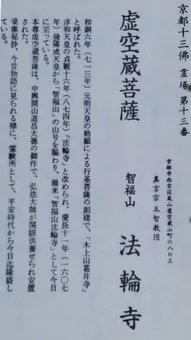 京都十三佛霊場第十三番
京都市西京区嵐山虚空蔵山町六八の三
真言宗五智教団
虚空蔵菩薩
智福山 法輪寺
和銅六年（七一三年）元明天皇の勅願による行基菩薩の創建で、「木上山葛井寺」
と呼ばれた。
淳和天皇の貞観十六年（八七四年）「法輪寺」と改められ、慶長十一年（一六〇七
年）後陽成天皇から「智福山」の山号を賜わり、爾来、「智福山法輪寺」として今日
に至っている。
本尊虚空蔵菩薩は、中興開山道昌大徳の御作で、弘法大師が開眼供養せられ安置
された。
梁塵秘抄、今昔物語に見られる様に、霊験所として、平安時代から今日迄隆盛し
ている。